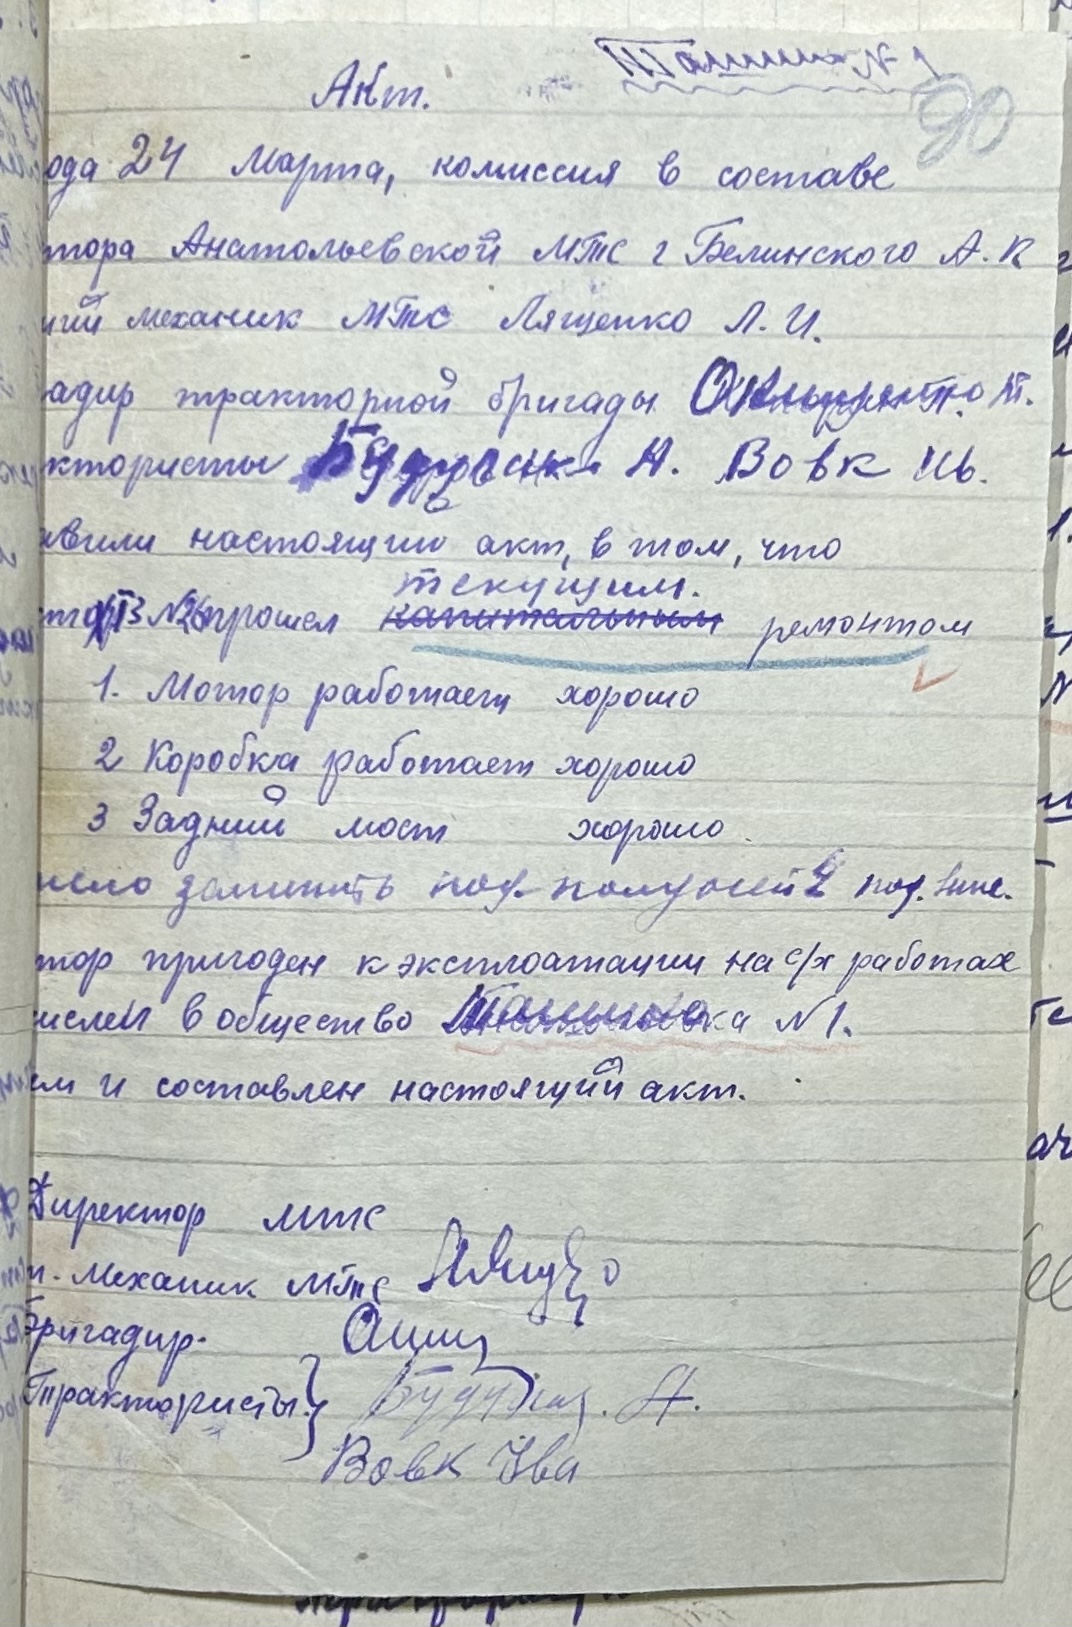 № 1
90
Акт.
ода 24 Марта, комиссия в составе
тора Анатольевской МТС г Белинского А. К
ий механик МТС Лященко Л. И.
адир тракторной бригады
ктористы А. Вовк Ив.
авили настоящий акт, в том, что
текущим.
прошел капитальным ремонтом
1. Мотор работает хорошо
2 Коробка работает хорошо
3 Задний мост хорошо
под. под.
тор пригоден к эксплоатации на с/х работах
ислен в общество №1.
ем и составлен настоящий акт.
Директор МТС
т. Механик МТС
Бригадир.
Трактористы. А.
Вовк Ива